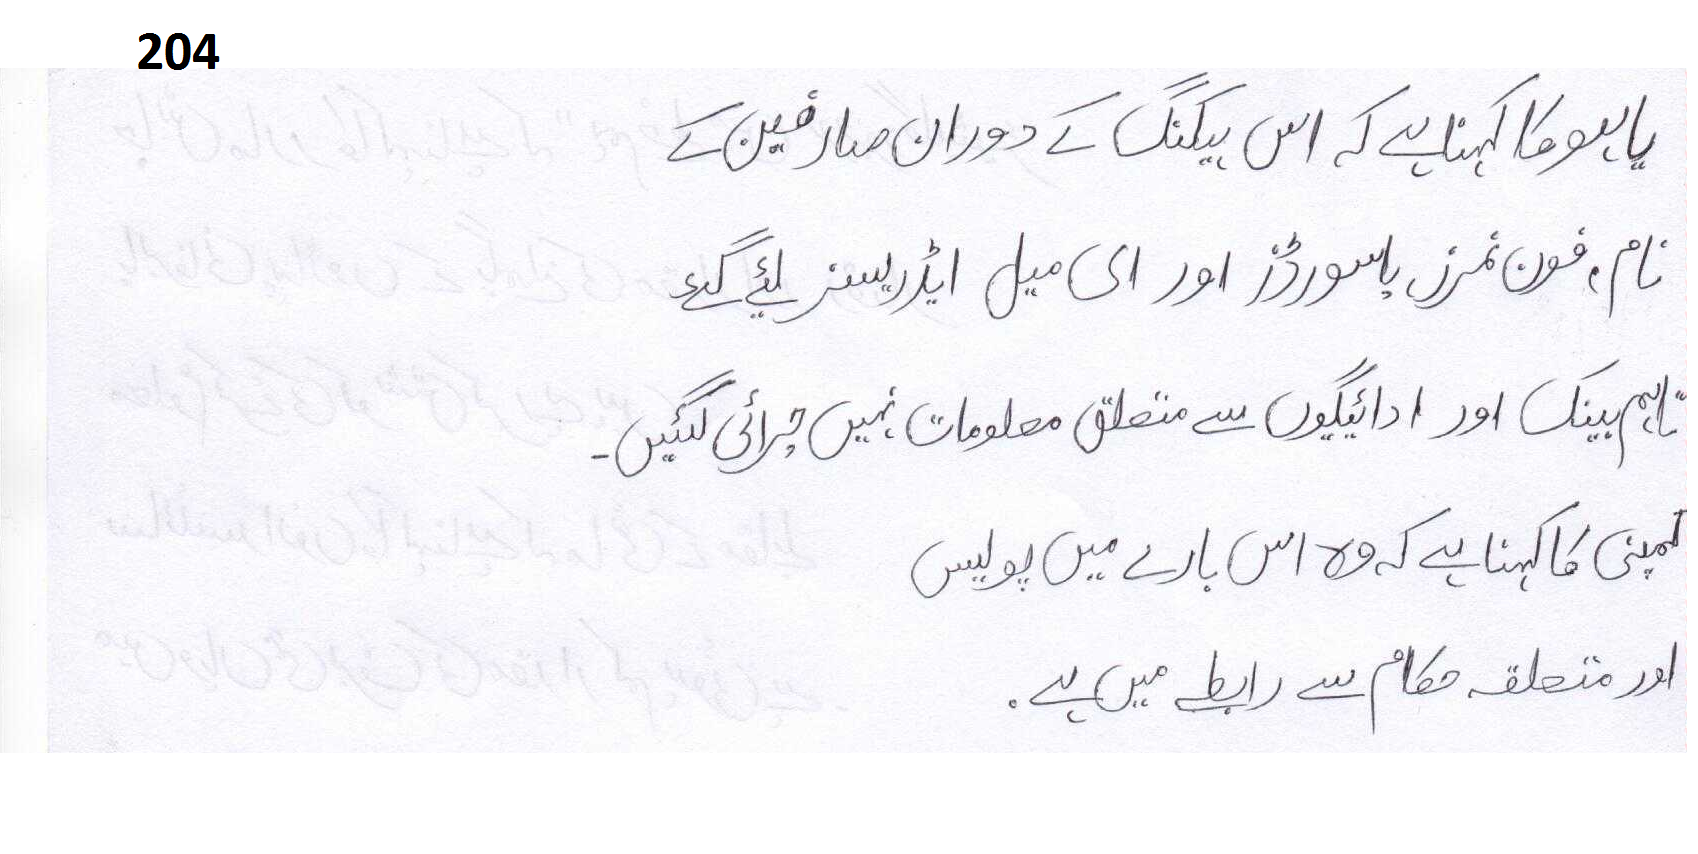 204
یاہو کا کہنا ہے کہ اس ہیکنگ کے دوران صارفین کے
نام، فون نمبرز، پاسورڈز اور ای میل ایڈریسز لئے گئے
تاہم بینک اور ادائیگیوں سے متعلق معلومات نہیں چرائی گئیں۔
کمپنی کا کہنا ہے کہ وہ اس بارے میں پولیس
اور متعلقہ حکام سے رابطے میں ہے۔